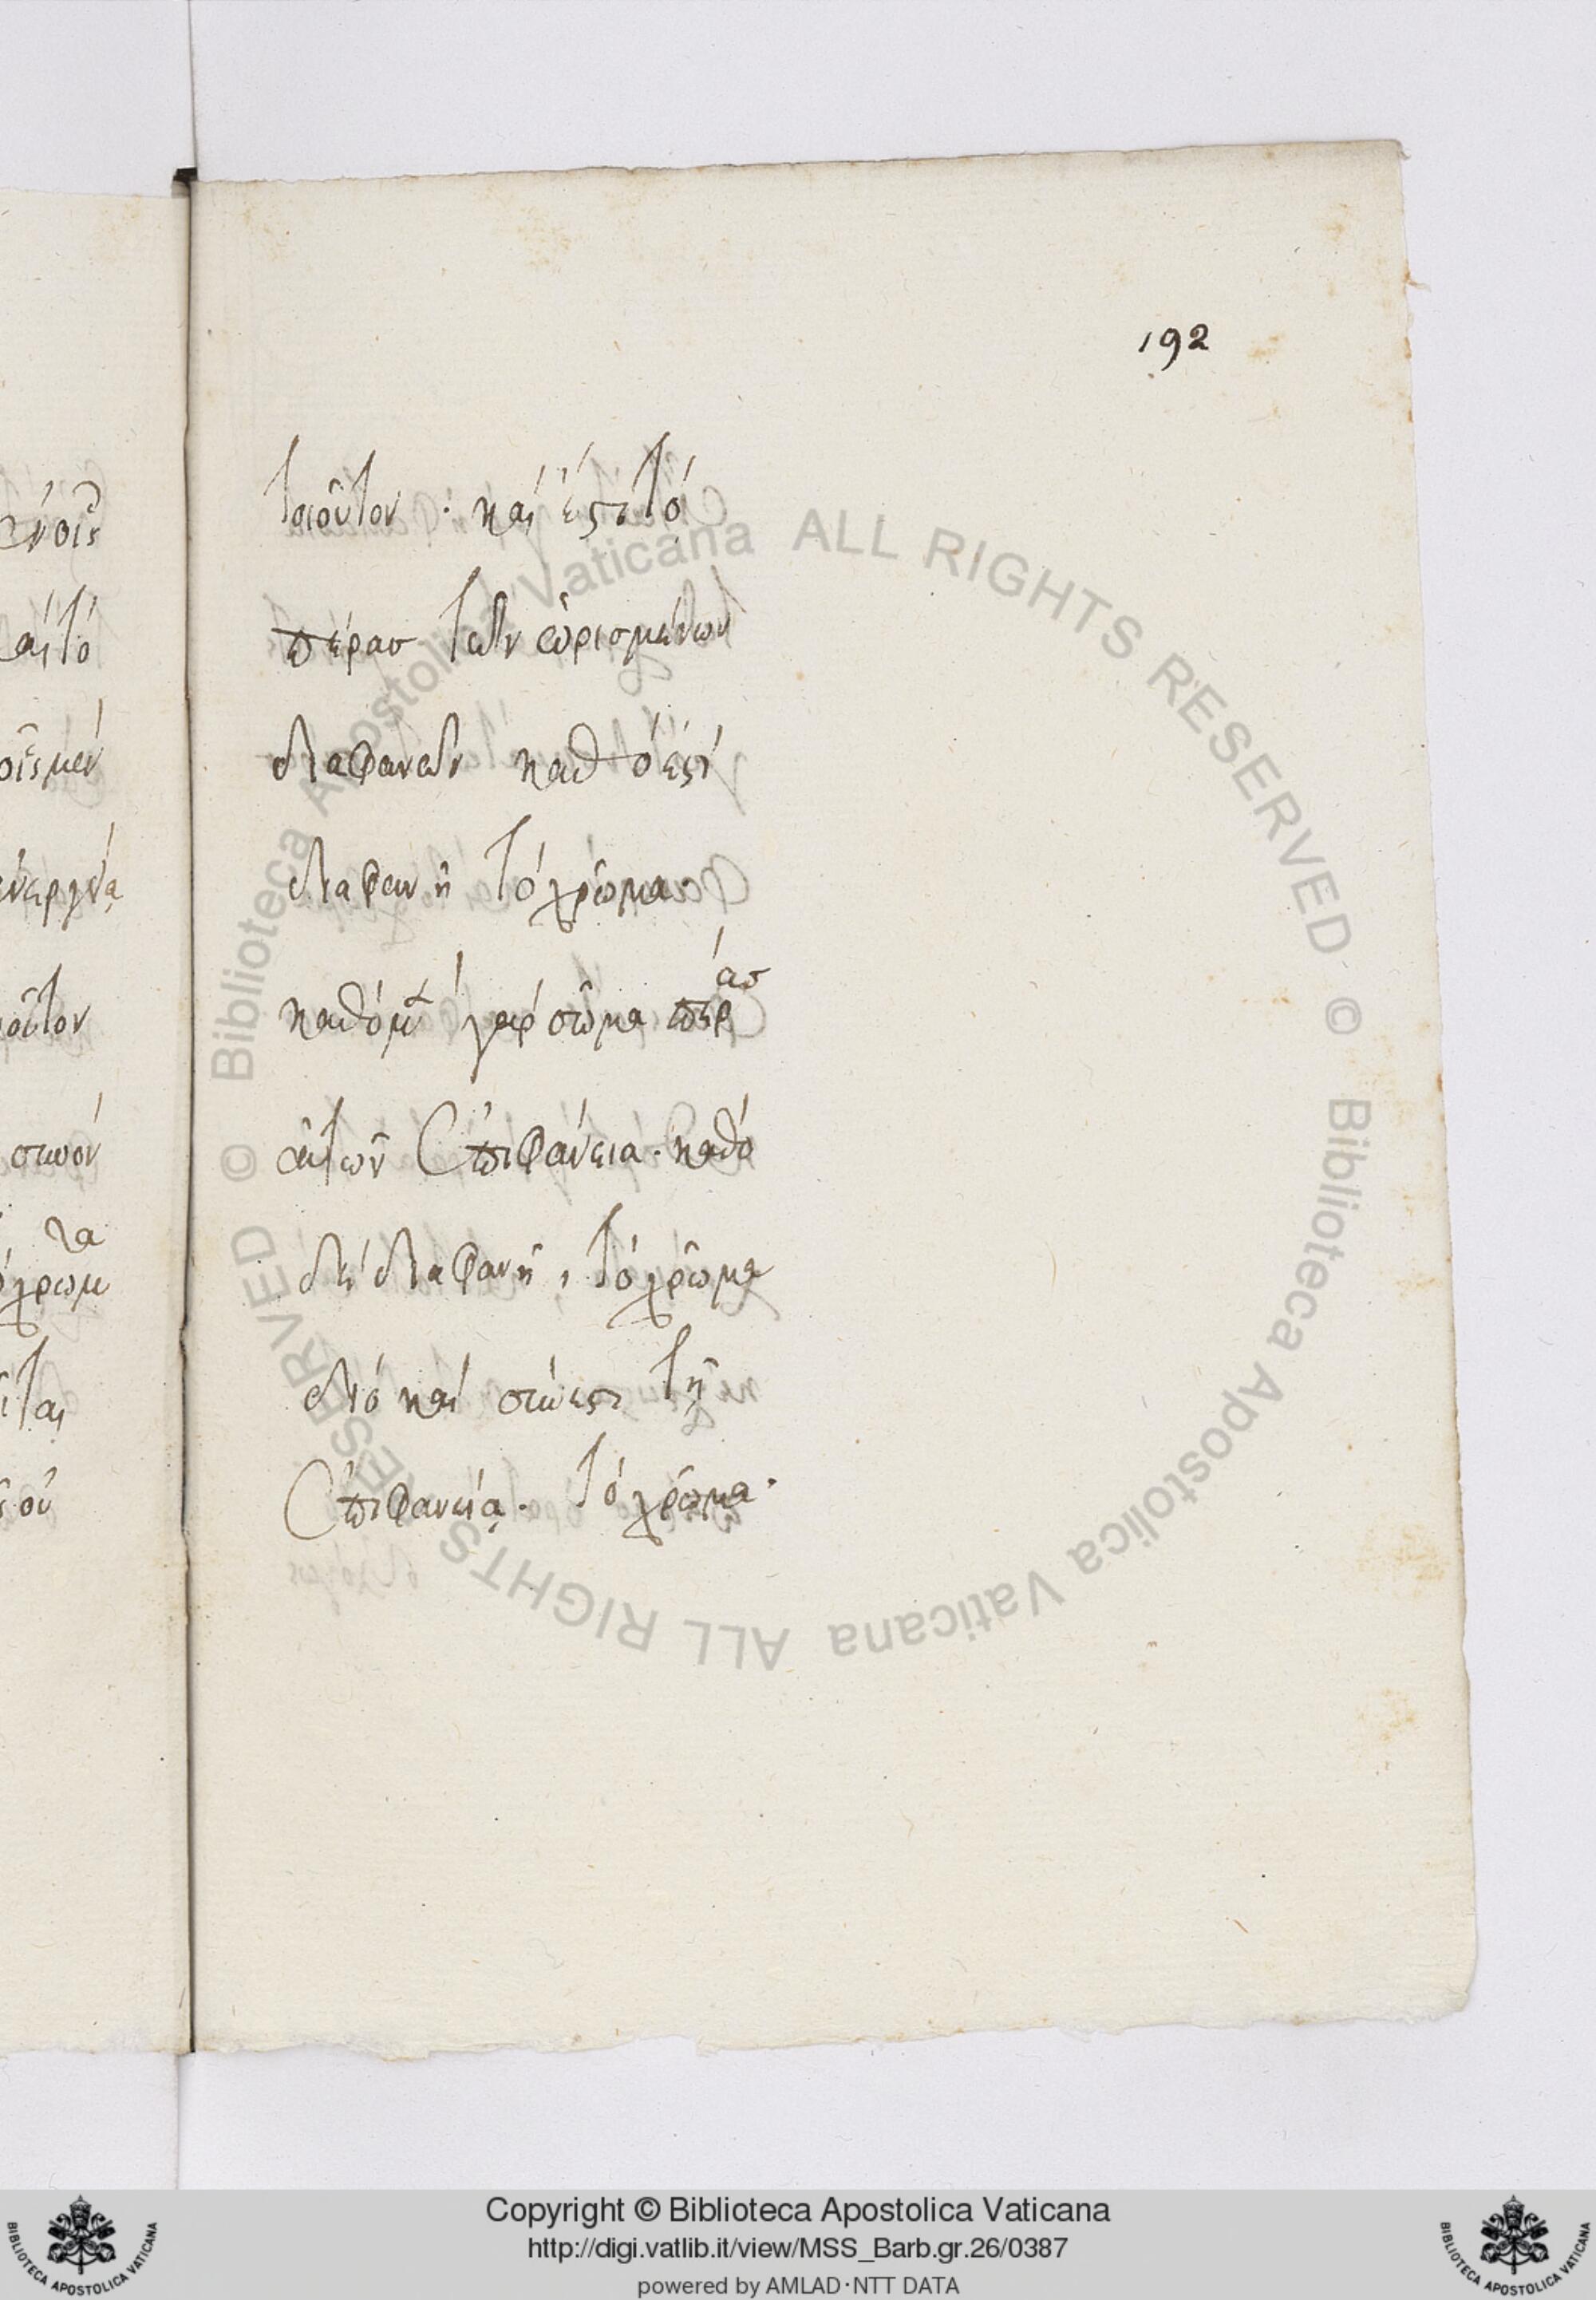 192
τοιοῦτον · καί ἐστι τό
πέρασ τῶν ὡρισμένων
διαφανῶν καθ ό ἐστί
διαφανῆ τό χρῶμα·
καθόμ γάρ σῶμα πέρασ
αὐτῶν ἐπιφάνεια · καθό
δέ διαφανῆ, τό χρῶμα
διό καί σύνεστι τῇ
ἐπιφανείᾳ · τό χρῶμα·
αίτό
οῖς μέν
οῦτον
χρωμτα
ται
Biblioteca Apostolica Vaticana ALL RIGHTS RESERVED ©
Biblioteca Apostolica Vaticana ALL RIGHTS RESERVED ©
Copyright © Biblioteca Apostolica Vaticana
http://digi.vatlib.it/view/MSS_Barb.gr.26/0387
powered by AMLAD·NTT DATA
BIBLIOTECA APOSTOLICA VATICANA
BIBLIOTECA APOSTOLICA VATICANA